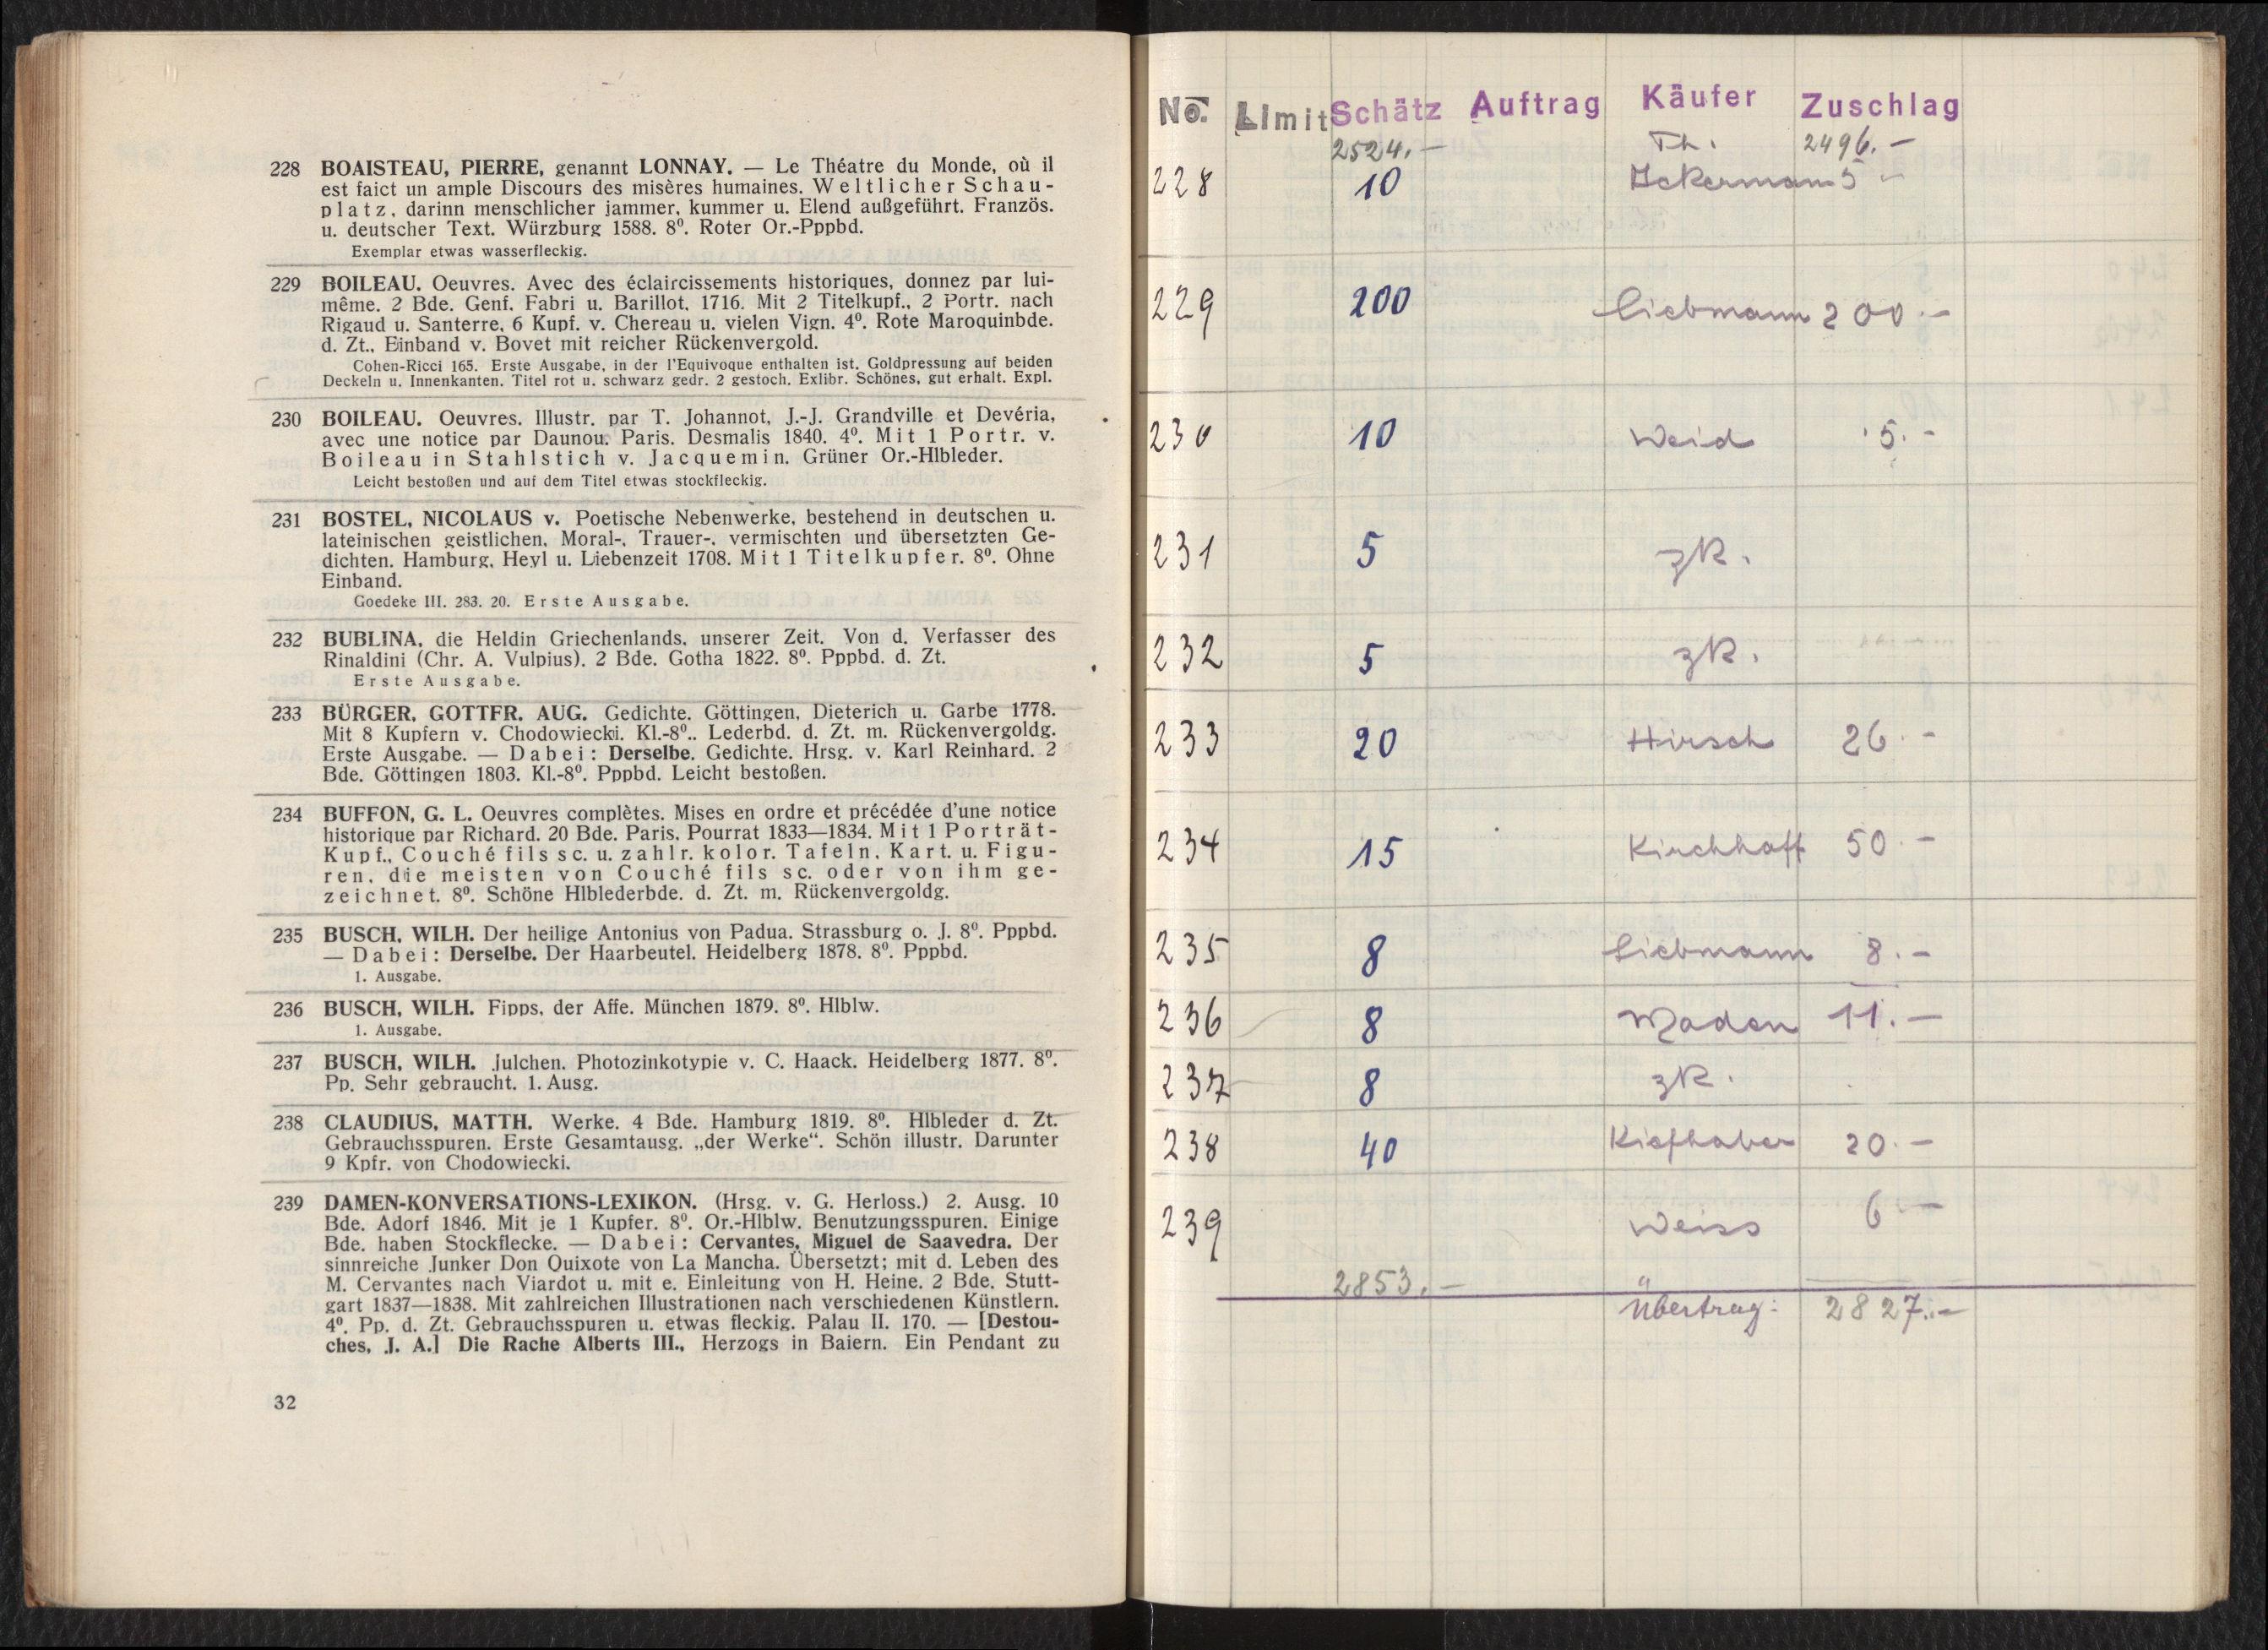 228 BOAISTEAU, PIERRE, genannt LONNAY. — Le Théatre du Monde, où il
est faict un ample Discours des misères humaines. Weltlicher Schau-
platz, darinn menschlicher jammer, kummer u. Elend außgeführt. Französ.
u. deutscher Text. Würzburg 1588. 8⁰. Roter Or.-Pppbd.
Exemplar etwas wasserfleckig.
229 BOILEAU. Oeuvres. Avec des éclaircissements historiques, donnez par lui-
même. 2 Bde. Genf. Fabri u. Barillot, 1716. Mit 2 Titelkupf., 2 Portr. nach
Rigaud u. Santerre, 6 Kupf. v. Chereau u. vielen Vign. 4⁰. Rote Maroquinbde.
d. Zt., Einband v. Bovet mit reicher Rückenvergold.
Cohen-Ricci 165. Erste Ausgabe, in der l'Equivoque enthalten ist. Goldpressung auf beiden
Deckeln u. Innenkanten. Titel rot u. schwarz gedr. 2 gestoch. Exlibr. Schönes, gut erhalt. Expl.
230 BOILEAU. Oeuvres. Illustr. par T. Johannot, J.-J. Grandville et Devéria,
avec une notice par Daunou. Paris. Desmalis 1840. 4⁰. Mit 1 Portr. v.
Boileau in Stahlstich v. Jacquemin. Grüner Or.-Hlbleder.
Leicht bestoßen und auf dem Titel etwas stockfleckig.
231 BOSTEL, NICOLAUS v. Poetische Nebenwerke, bestehend in deutschen u.
lateinischen geistlichen, Moral-, Trauer-, vermischten und übersetzten Ge-
dichten. Hamburg, Heyl u. Liebenzeit 1708. Mit 1 Titelkupfer. 8⁰. Ohne
Einband.
Goedeke III. 283. 20. Erste Ausgabe.
232 BUBLINA, die Heldin Griechenlands, unserer Zeit. Von d. Verfasser des
Rinaldini (Chr. A. Vulpius). 2 Bde. Gotha 1822. 8⁰. Pppbd. d. Zt.
Erste Ausgabe.
233 BÜRGER, GOTTFR. AUG. Gedichte. Göttingen, Dieterich u. Garbe 1778.
Mit 8 Kupfern v. Chodowiecki. Kl.-8⁰.. Lederbd. d. Zt. m. Rückenvergoldg.
Erste Ausgabe. — Dabei: Derselbe. Gedichte. Hrsg. v. Karl Reinhard. 2
Bde. Göttingen 1803. Kl.-8⁰. Pppbd. Leicht bestoßen.
234 BUFFON, G. L. Oeuvres complètes. Mises en ordre et précédée d'une notice
historique par Richard. 20 Bde. Paris, Pourrat 1833—1834. Mit 1 Porträt-
Kupf., Couché fils sc. u. zahlr. kolor. Tafeln, Kart. u. Figu-
ren, die meisten von Couché fils sc. oder von ihm ge-
zeichnet. 8⁰. Schöne Hlblederbde. d. Zt. m. Rückenvergoldg.
235 BUSCH, WILH. Der heilige Antonius von Padua. Strassburg o. J. 8⁰. Pppbd.
— Dabei: Derselbe. Der Haarbeutel. Heidelberg 1878. 8⁰. Pppbd.
1. Ausgabe.
236 BUSCH, WILH. Fipps, der Affe. München 1879. 8⁰. Hlblw.
1. Ausgabe.
237 BUSCH, WILH. Julchen. Photozinkotypie v. C. Haack. Heidelberg 1877. 8⁰.
Pp. Sehr gebraucht. 1. Ausg.
238 CLAUDIUS, MATTH. Werke. 4 Bde. Hamburg 1819. 8⁰. Hlbleder d. Zt.
Gebrauchsspuren. Erste Gesamtausg. „der Werke“. Schön illustr. Darunter
9 Kpfr. von Chodowiecki.
239 DAMEN-KONVERSATIONS-LEXIKON. (Hrsg. v. G. Herloss.) 2. Ausg. 10
Bde. Adorf 1846. Mit je 1 Kupfer. 8⁰. Or.-Hlblw. Benutzungsspuren. Einige
Bde. haben Stockflecke. — Dabei: Cervantes, Miguel de Saavedra. Der
sinnreiche Junker Don Quixote von La Mancha. Übersetzt; mit d. Leben des
M. Cervantes nach Viardot u. mit e. Einleitung von H. Heine. 2 Bde. Stutt-
gart 1837—1838. Mit zahlreichen Illustrationen nach verschiedenen Künstlern.
4⁰. Pp. d. Zt. Gebrauchsspuren u. etwas fleckig. Palau II. 170. — [Destou-
ches, J. A.] Die Rache Alberts III., Herzogs in Baiern. Ein Pendant zu
32
No. Limit Schätz Auftrag Käufer Zuschlag
2524.— Th. 2496.—
228 10 Ackermann 5 –
229 200 Liebmann 200.–
230 10 Weid 5.–
231 5 zR.
232 5 zR.
233 20 Hirsch 26.–
234 15 Kirchhoff 50.–
235 8 Liebmann 8.–
236 8 Maden 11.–
237 8 zR.
238 40 Kiefhaber 20.–
239 Weiss 6.–
2853.–
Übertrag: 2827.–